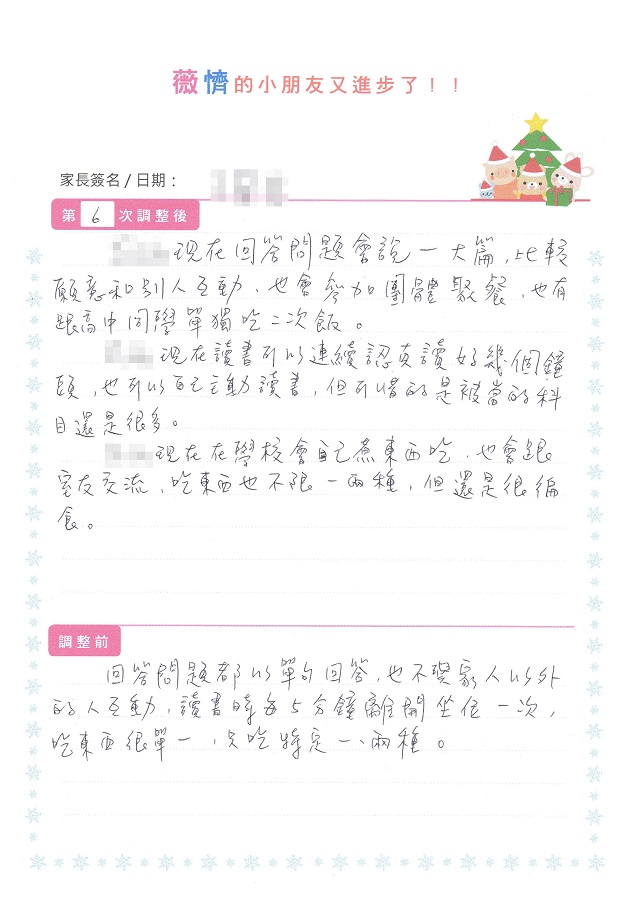 薇懠的小朋友又進步了！！
家長簽名/日期：
第6次調整後
現在回答問題會說一大篇，比較
願意和別人互動、也會參加團體聚餐，也有
跟高中同學單獨吃二次飯。
現在讀書可以連續認真讀好幾個鐘
頭，也可以自己主動讀書，但可惜的是被當的科
目還是很多。
現在在學校會自己煮東西吃，也會跟
室友交流，吃東西也不限一兩種，但還是很偏
食。
調整前
回答問題都以單句回答，也不與家人以外
的人互動，讀書時每5分鐘離開坐位一次，
吃東西很單一，只吃特定一、兩種。